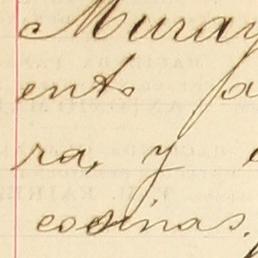 Muray
ents fa
ra, y
cosinas.